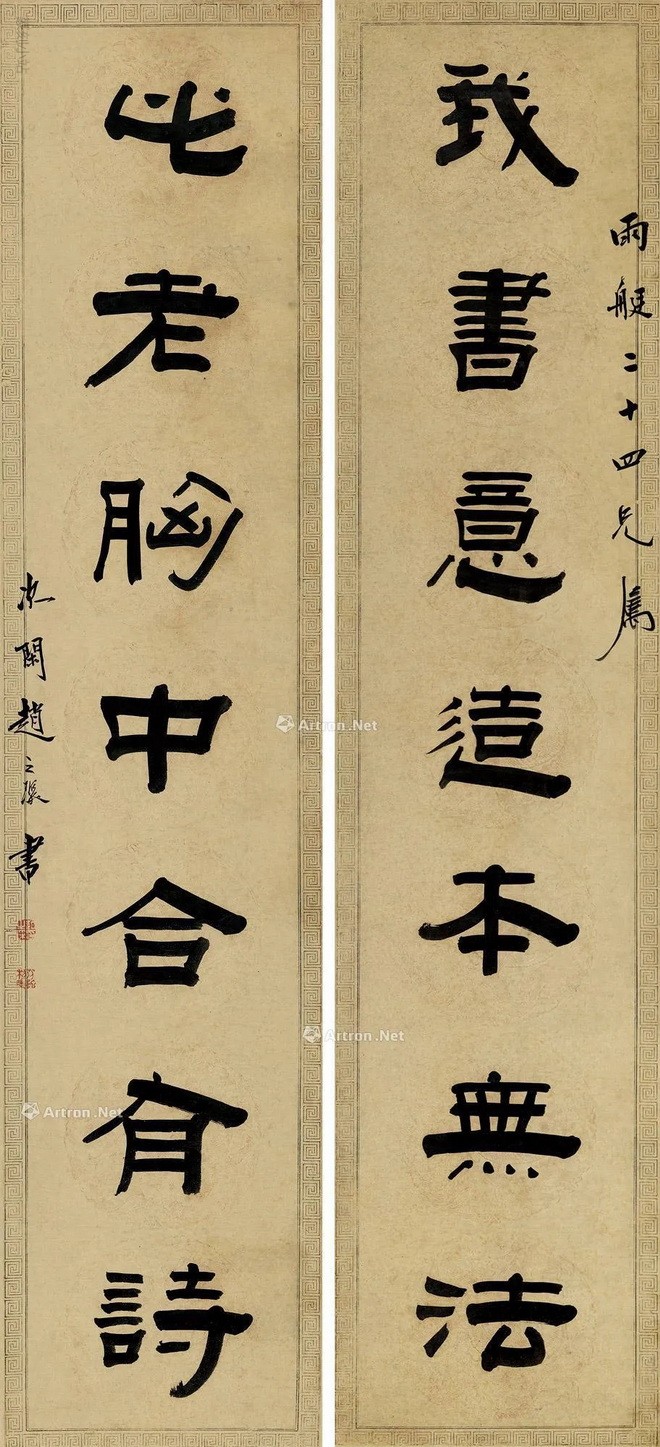 雨艇二十四兄屬
我書意造本無法
此老胸中合有詩
次閑趙之琛書
Artron.Net
Artron.Net
Artron.Net